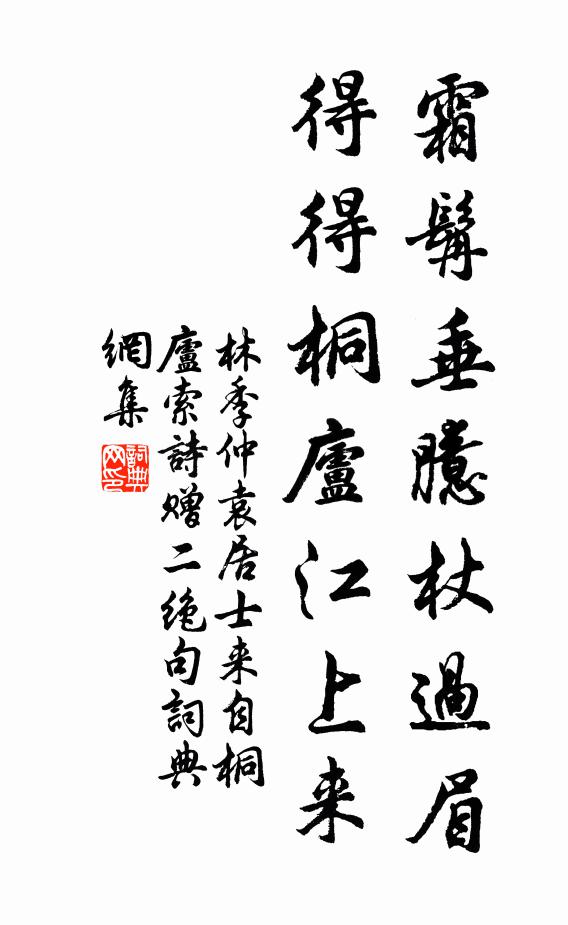 霜髯垂臆杖過眉
得得桐廬江上来
林季仲袁居士来自桐
廬索詩贈二絶句詞典
網集
詞典
网印